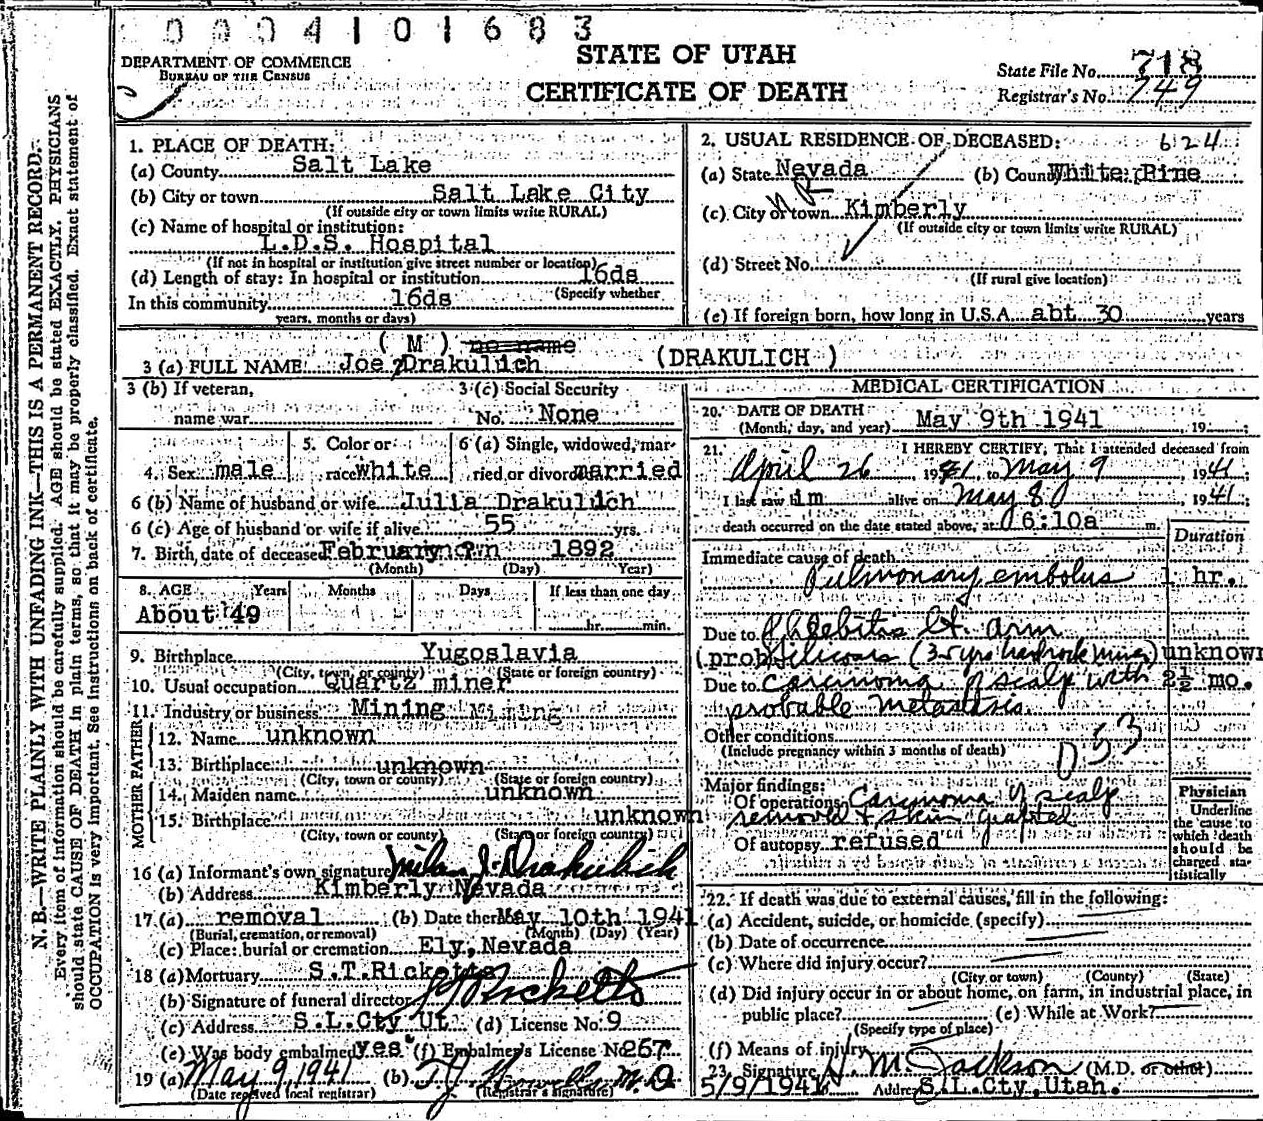 0004101683
DEPARTMENT OF COMMERCE
BUREAU OF THE CENSUS
STATE OF UTAH
CERTIFICATE OF DEATH
State File No. 718
Registrar's No. 749
N. B.—WRITE PLAINLY WITH UNFADING INK—THIS IS A PERMANENT RECORD.
Every item of information should be carefully supplied. AGE should be stated EXACTLY. PHYSICIANS
should state CAUSE OF DEATH in plain terms, so that it may be properly classified. Exact statement of
OCCUPATION is very important. See instructions on back of certificate.
1. PLACE OF DEATH:
(a) County Salt Lake
(b) City or town Salt Lake City
(If outside city or town limits write RURAL)
(c) Name of hospital or institution:
L.D.S. Hospital
(If not in hospital or institution give street number or location)
(d) Length of stay: In hospital or institution 16ds
(Specify whether
In this community 16ds
years, months or days)
2. USUAL RESIDENCE OF DECEASED: 624
(a) State Nevada (b) County White Pine
NR
(c) City or town Kimberly
(If outside city or town limits write RURAL)
(d) Street No.
(If rural give location)
(e) If foreign born, how long in U.S.A. abt 30 years
( M ) no name
3 (a) FULL NAME Joe Drakulich (DRAKULICH )
3 (b) If veteran,
name war
3 (c) Social Security
No. None
4. Sex male
5. Color or
race white
6 (a) Single, widowed, mar-
ried or divorced married
6 (b) Name of husband or wife Julia Drakulich
6 (c) Age of husband or wife if alive 55 yrs.
7. Birth date of deceased February 1892
(Month) (Day) Year)
8. AGE Years Months Days If less than one day
About 49 hr. min.
9. Birthplace Yugoslavia
(City, town, or county) (State or foreign country)
10. Usual occupation Quartz miner
11. Industry or business Mining Mining
FATHER
12. Name unknown
13. Birthplace unknown
(City, town or county) (State or foreign country)
MOTHER
14. Maiden name unknown
15. Birthplace unknown
(City, town or county) (State or foreign country)
16 (a) Informant's own signature Milan J. Drakulich
(b) Address Kimberly Nevada
17 (a) removal (b) Date thereof May 10th 1941
(Burial, cremation, or removal) (Month) (Day) (Year)
(c) Place: burial or cremation Ely, Nevada
18 (a) Mortuary S.T.Ricketts
(b) Signature of funeral director Ricketts
(c) Address S.L.Cty Ut (d) License No. 9
(e) Was body embalmed yes (f) Embalmer's License No 267
19 (a) May 9, 1941 (b) M.D
(Date received local registrar) (Registrar's signature)
MEDICAL CERTIFICATION
20. DATE OF DEATH
(Month, day, and year) May 9th 1941 19 ;
21. I HEREBY CERTIFY, That I attended deceased from
April 26, 1941 to May 9, 1941;
I last saw him alive on May 8, 1941;
death occurred on the date stated above, at 6:10a m.
Duration
Immediate cause of death
Pulmonary embolus 1 hr.
Due to Phlebitis Lt. arm
(prob Silicosis (35 yrs hardrock miner) unknown
Due to Carcinoma of scalp with 2½ mo.
probable metastasis.
Other conditions
(Include pregnancy within 3 months of death)
053
Major findings:
Of operations Carcinoma of scalp
removed & skin grafted
Of autopsy refused
Physician
Underline
the cause to
which death
should be
charged sta-
tistically
22. If death was due to external causes, fill in the following:
(a) Accident, suicide, or homicide (specify)
(b) Date of occurrence
(c) Where did injury occur?
(City or town) (County) (State)
(d) Did injury occur in or about home, on farm, in industrial place, in
public place? (e) While at Work?
(Specify type of place)
(f) Means of injury
23. Signature M. Jackson (M.D. or other)
5/9/1941 Address S.L.Cty, Utah.